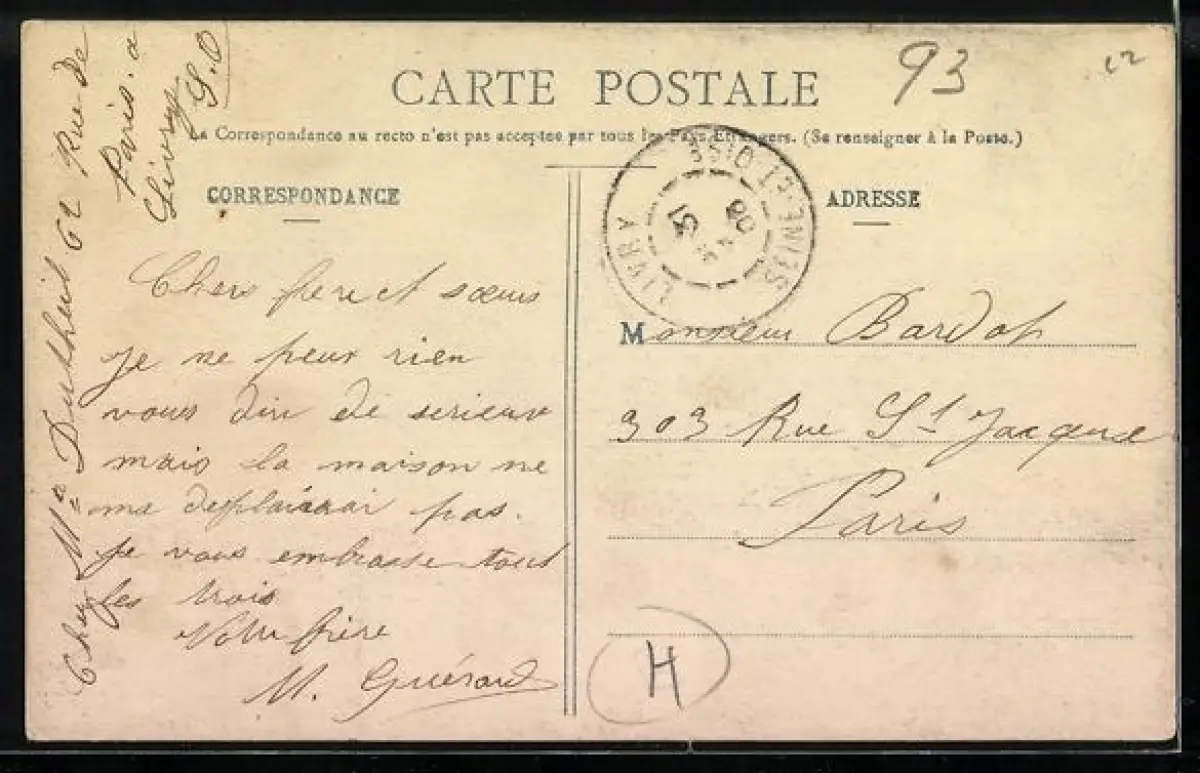 CARTE POSTALE
93
La Correspondance au recto n'est pas acceptée par tous les Pays Etrangers. (Se renseigner à la Poste.)
CORRESPONDANCE
ADRESSE
Chers frere et sœurs
je ne peux rien
vous dire de serieux
mais la maison ne
me deplairai pas.
je vous embrasse tous
les trois
Votre frère
M. Guérard
Chez Mme Dutheil 62 Rue de
Paris. a
Livry S.O
LIVRY SEINE-ET-OISE
Monsieur Bardot
303 Rue St Jacques
Paris
H